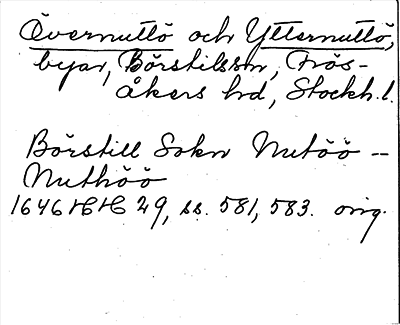 Övernuttö och Ytternuttö,
byar, Börstilssn, Frös-
åkers hd, Stockh.l.
Börstill Sokn Nutöö --
Nuthöö
1646 HH 29, ss. 581, 583. orig.